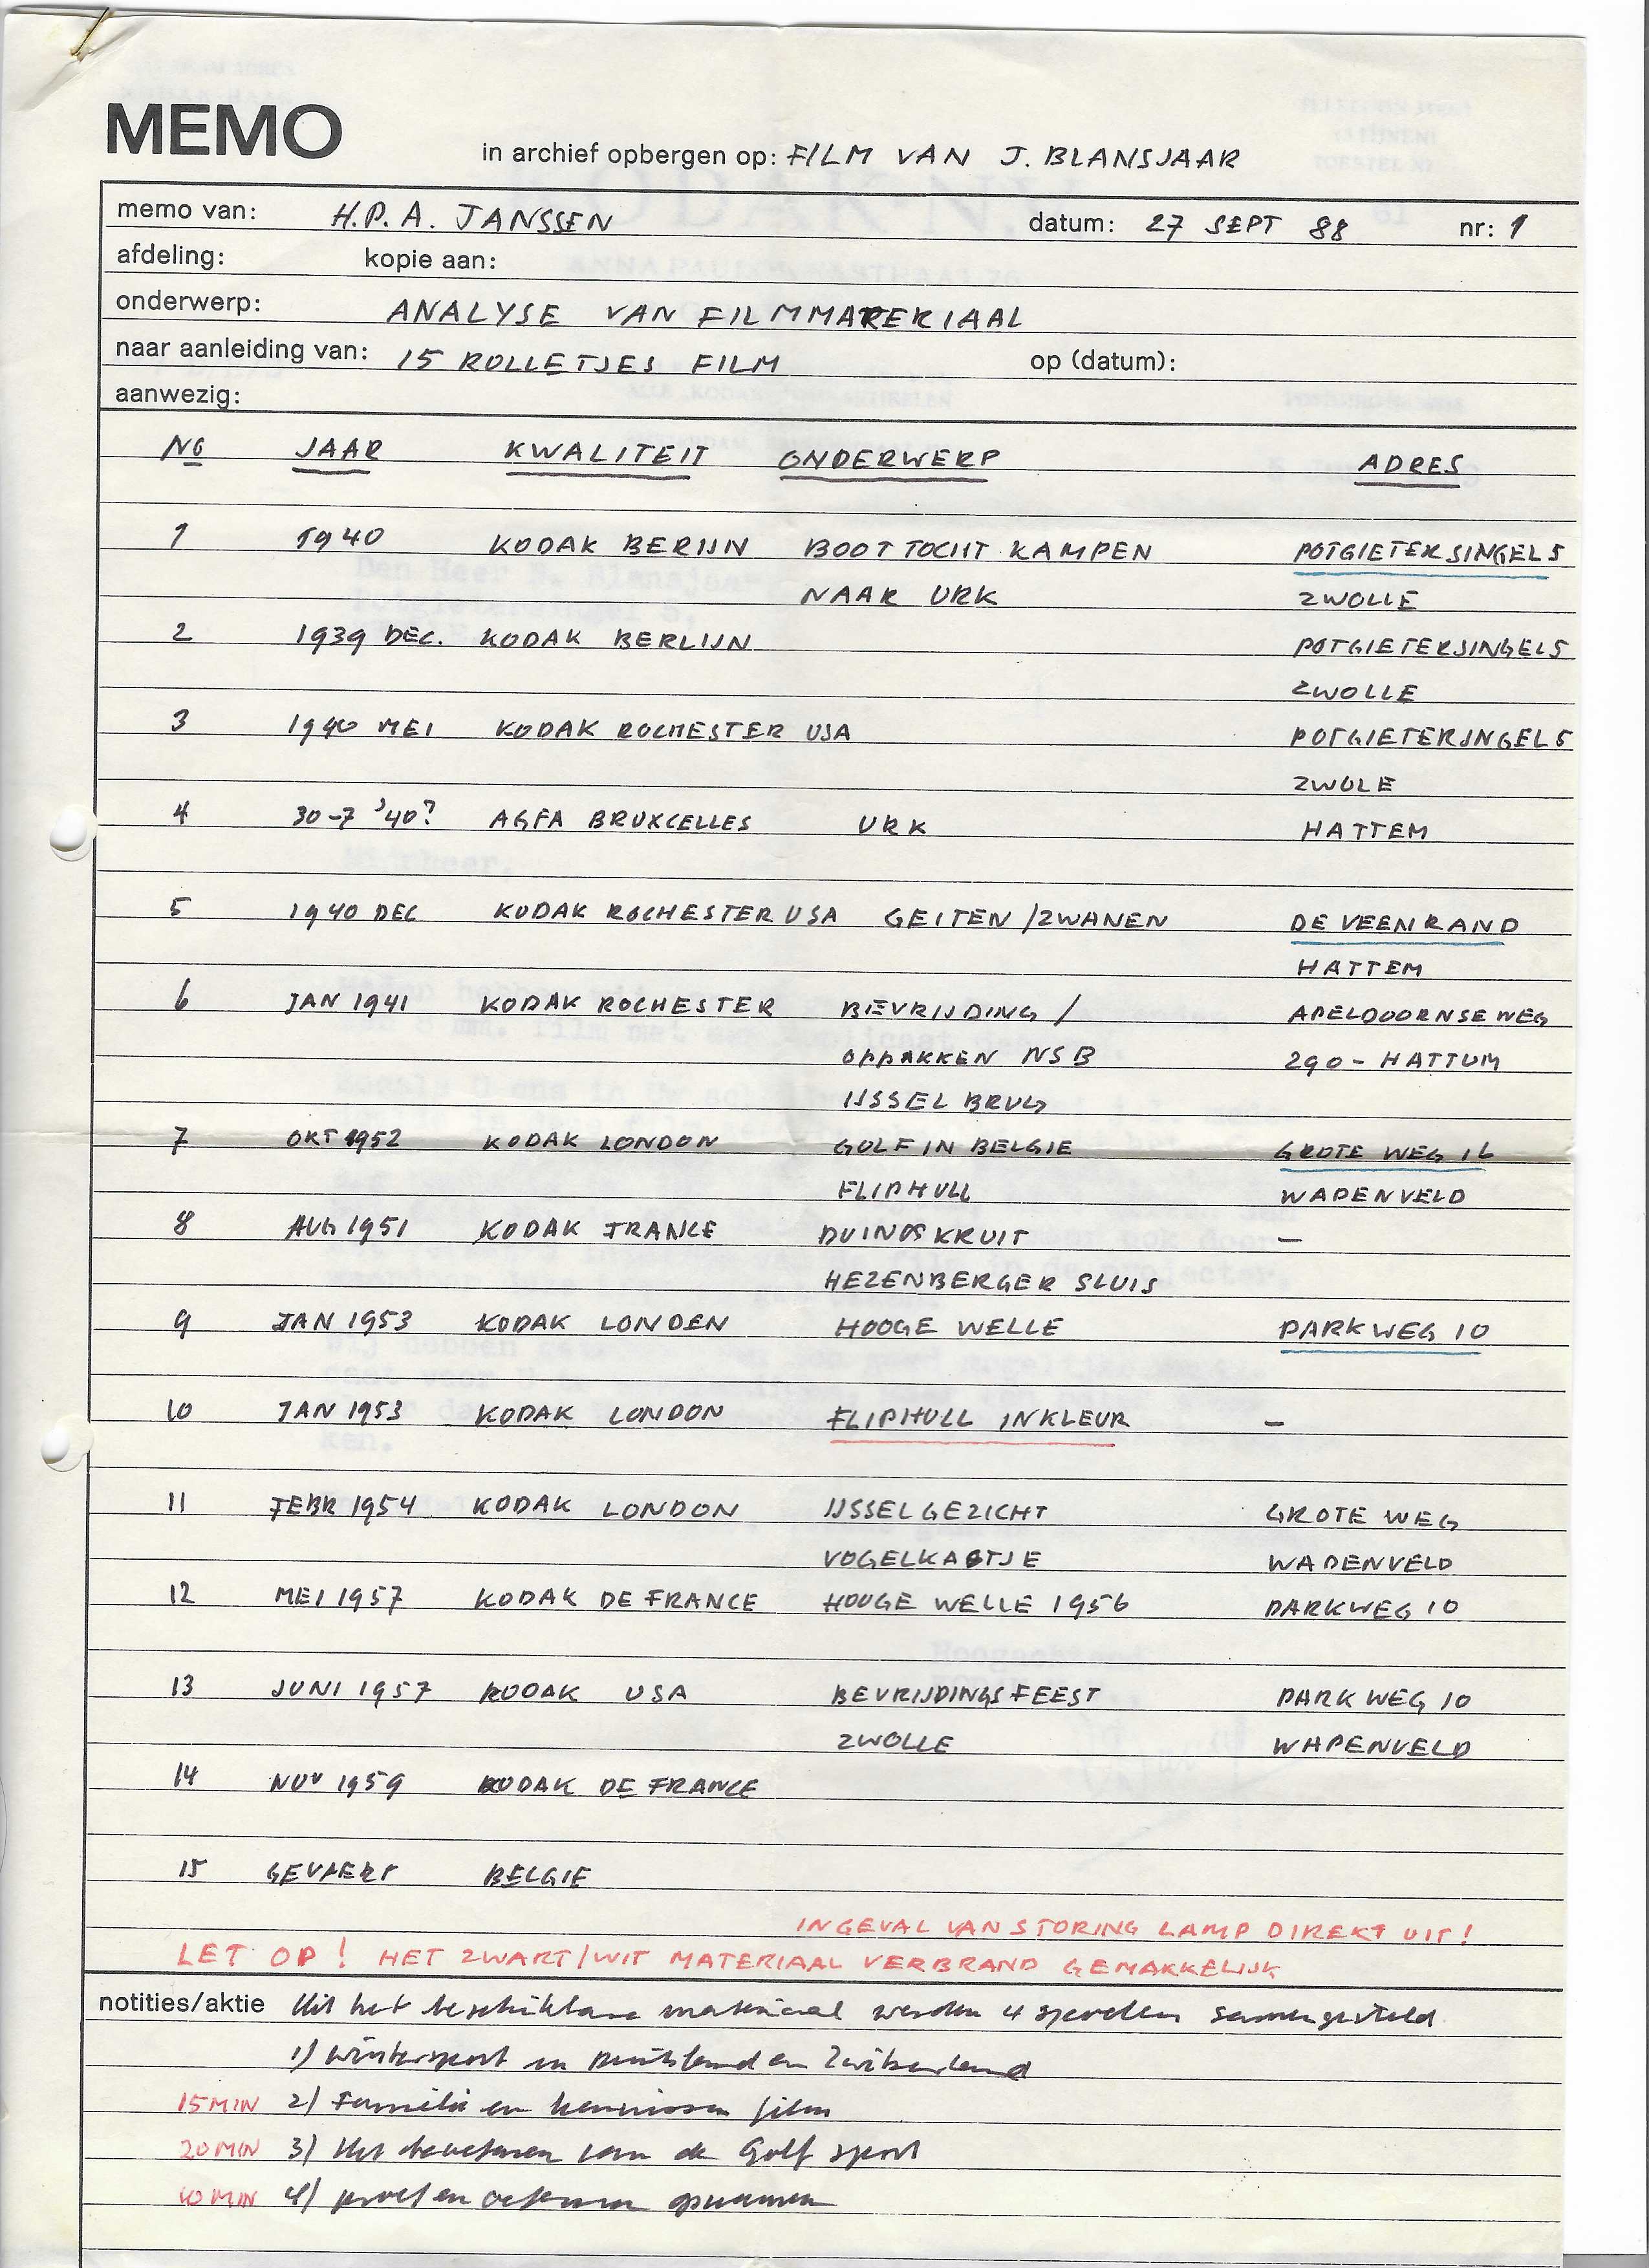 MEMO
in archief opbergen op: FILM VAN J. BLANSJAAR
memo van: H.P.A. JANSSEN datum: 27 SEPT 88 nr: 1
afdeling: kopie aan:
onderwerp: ANALYSE VAN FILMMATERIAAL
naar aanleiding van: 15 ROLLETJES FILM op (datum):
aanwezig:
NO JAAR KWALITEIT ONDERWERP ADRES
1 1940 KODAK BERIJN BOOTTOCHT KAMPEN POTGIETERSINGEL 5
NAAR URK ZWOLLE
2 1939 DEC. KODAK BERLIJN POTGIETERSINGEL 5
ZWOLLE
3 1940 MEI KODAK ROCHESTER USA POTGIETERSINGEL 5
ZWOLE
4 30-7 '40? AGFA BRUXCELLES URK HATTEM
5 1940 DEC KODAK ROCHESTER USA GEITEN/ZWANEN DE VEENRAND
HATTEM
6 JAN 1941 KODAK ROCHESTER BEVRIJDING / APELDOORNSEWEG
OPPAKKEN NSB 290 - HATTUM
IJSSEL BRUG
7 OKT 1952 KODAK LONDON GOLF IN BELGIE GROTE WEG 16
FLIPHULL WAPENVELD
8 AUG 1951 KODAK FRANCE DUINOSKRUIT —
HEZENBERGER SLUIS
9 JAN 1953 KODAK LONDEN HOOGE WELLE PARKWEG 10
10 JAN 1953 KODAK LONDON FLIPHULL IN KLEUR —
11 FEBR 1954 KODAK LONDON IJSSELGEZICHT GROTE WEG
VOGELKASTJE WAPENVELD
12 MEI 1957 KODAK DE FRANCE HOOGE WELLE 1956 PARKWEG 10
13 JUNI 1957 KODAK USA BEVRIJDINGSFEEST PARKWEG 10
ZWOLLE WAPENVELD
14 NOV 1959 KODAK DE FRANCE
15 GEVAERT BELGIE
IN GEVAL VAN STORING LAMP DIREKT UIT!
LET OP! HET ZWART/WIT MATERIAAL VERBRAND GEMAKKELIJK
notities/aktie Uit het beschikbare materiaal werden 4 spoelen samengesteld
1) Wintersport in Duitsland en Zwitserland
15 MIN 2) Familie en kennissen film
20 MIN 3) Het beoefenen van de Golf sport
10 MIN 4) proef en opnamen